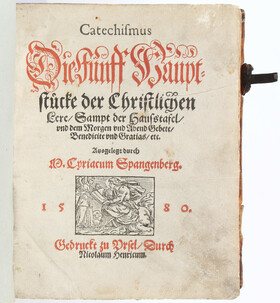 Catechismus
Die Fünff Häupt-
stücke der Christlichen
Lere/ Sampt der Haußtafel/
vnd dem Morgen vnd Abend Gebete/
Benedicite vnd Gratias/ etc.
Ausgelegt durch
M. Cyriacum Spangenberg.
1 5 8 0.
Gedruckt zu Vrsel/ Durch
Nicolaum Henricum.